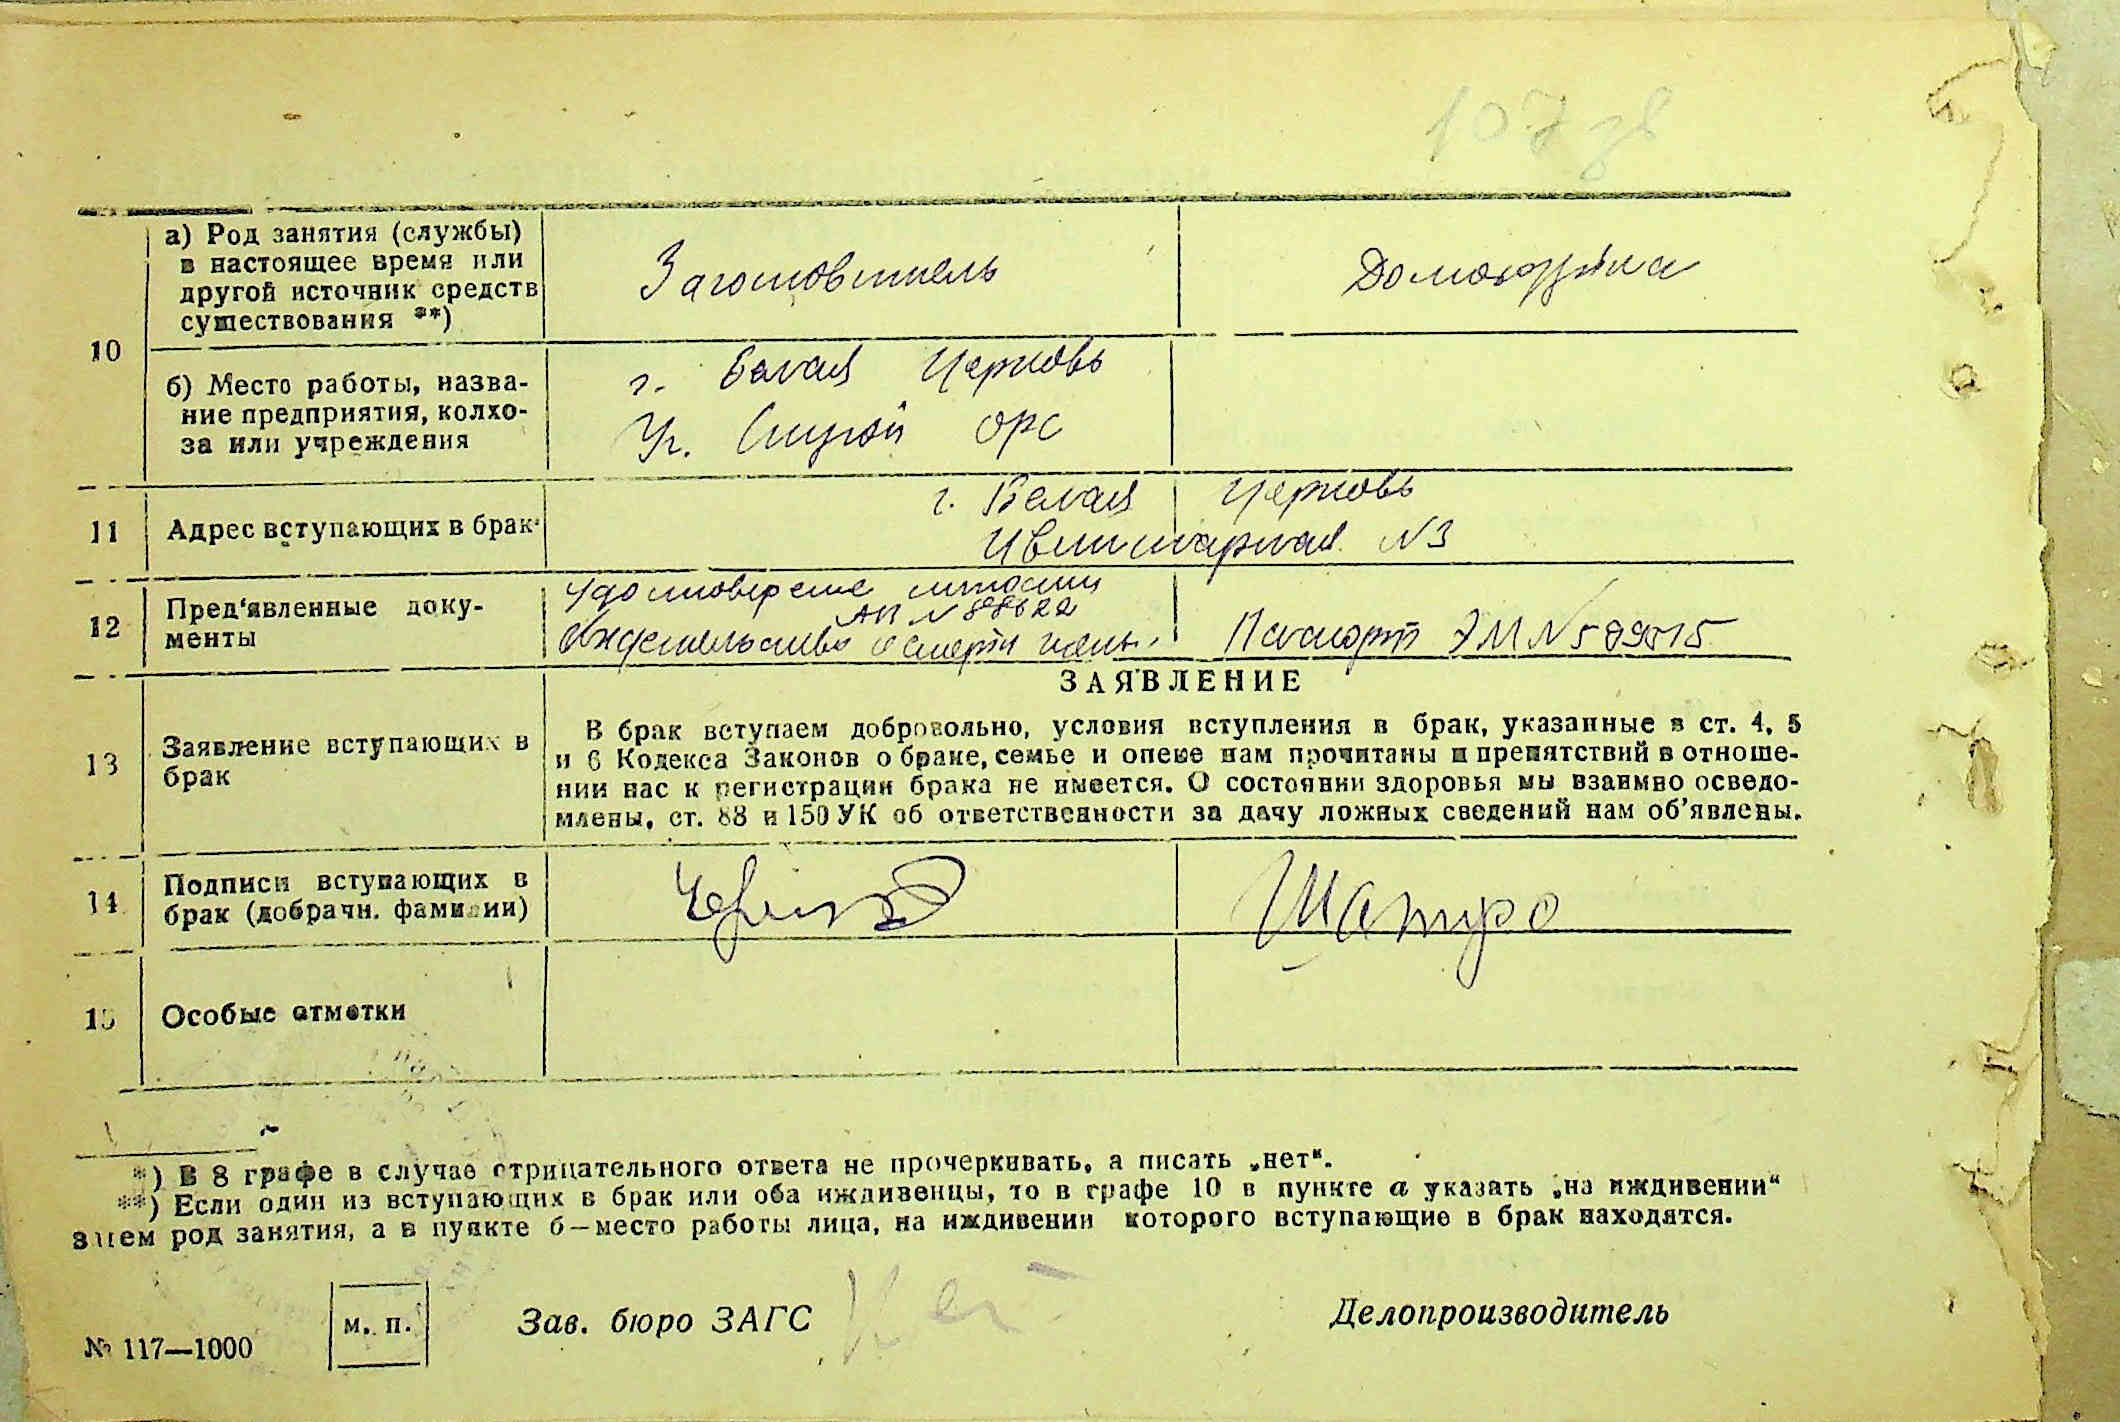 107 зв
а) Род занятия (службы)
в настоящее время или
другой источник средств
существования **)
Заготовитель
Домохозяйка
10
б) Место работы, назва-
ние предприятия, колхо-
за или учреждения
г. Белая Церковь
ОРС
11
Адрес вступающих в брак
г. Белая Церковь
№3
12
Пред'явленные доку-
менты
Удостоверение личности
АП №88622
Свидетельство о смерти жены.
Паспорт ЭМ №589515
ЗАЯВЛЕНИЕ
13
Заявление вступающих в
брак
В брак вступаем добровольно, условия вступления в брак, указанные в ст. 4, 5
и 6 Кодекса Законов о браке, семье и опеке нам прочитаны и препятствий в отноше-
нии нас к регистрации брака не имеется. О состоянии здоровья мы взаимно осведо-
млены, ст. 88 и 150 УК об ответственности за дачу ложных сведений нам об'явлены.
14
Подписи вступающих в
брак (добрачн. фамилии)
Шатро
15
Особые отметки
*) В 8 графе в случае отрицательного ответа не прочеркивать, а писать „нет“.
**) Если один из вступающих в брак или оба иждивенцы, то в графе 10 в пункте а указать „на иждивении“
род занятия, а в пункте б—место работы лица, на иждивении которого вступающие в брак находятся.
м. п.
Зав. бюро ЗАГС
Делопроизводитель
№ 117—1000